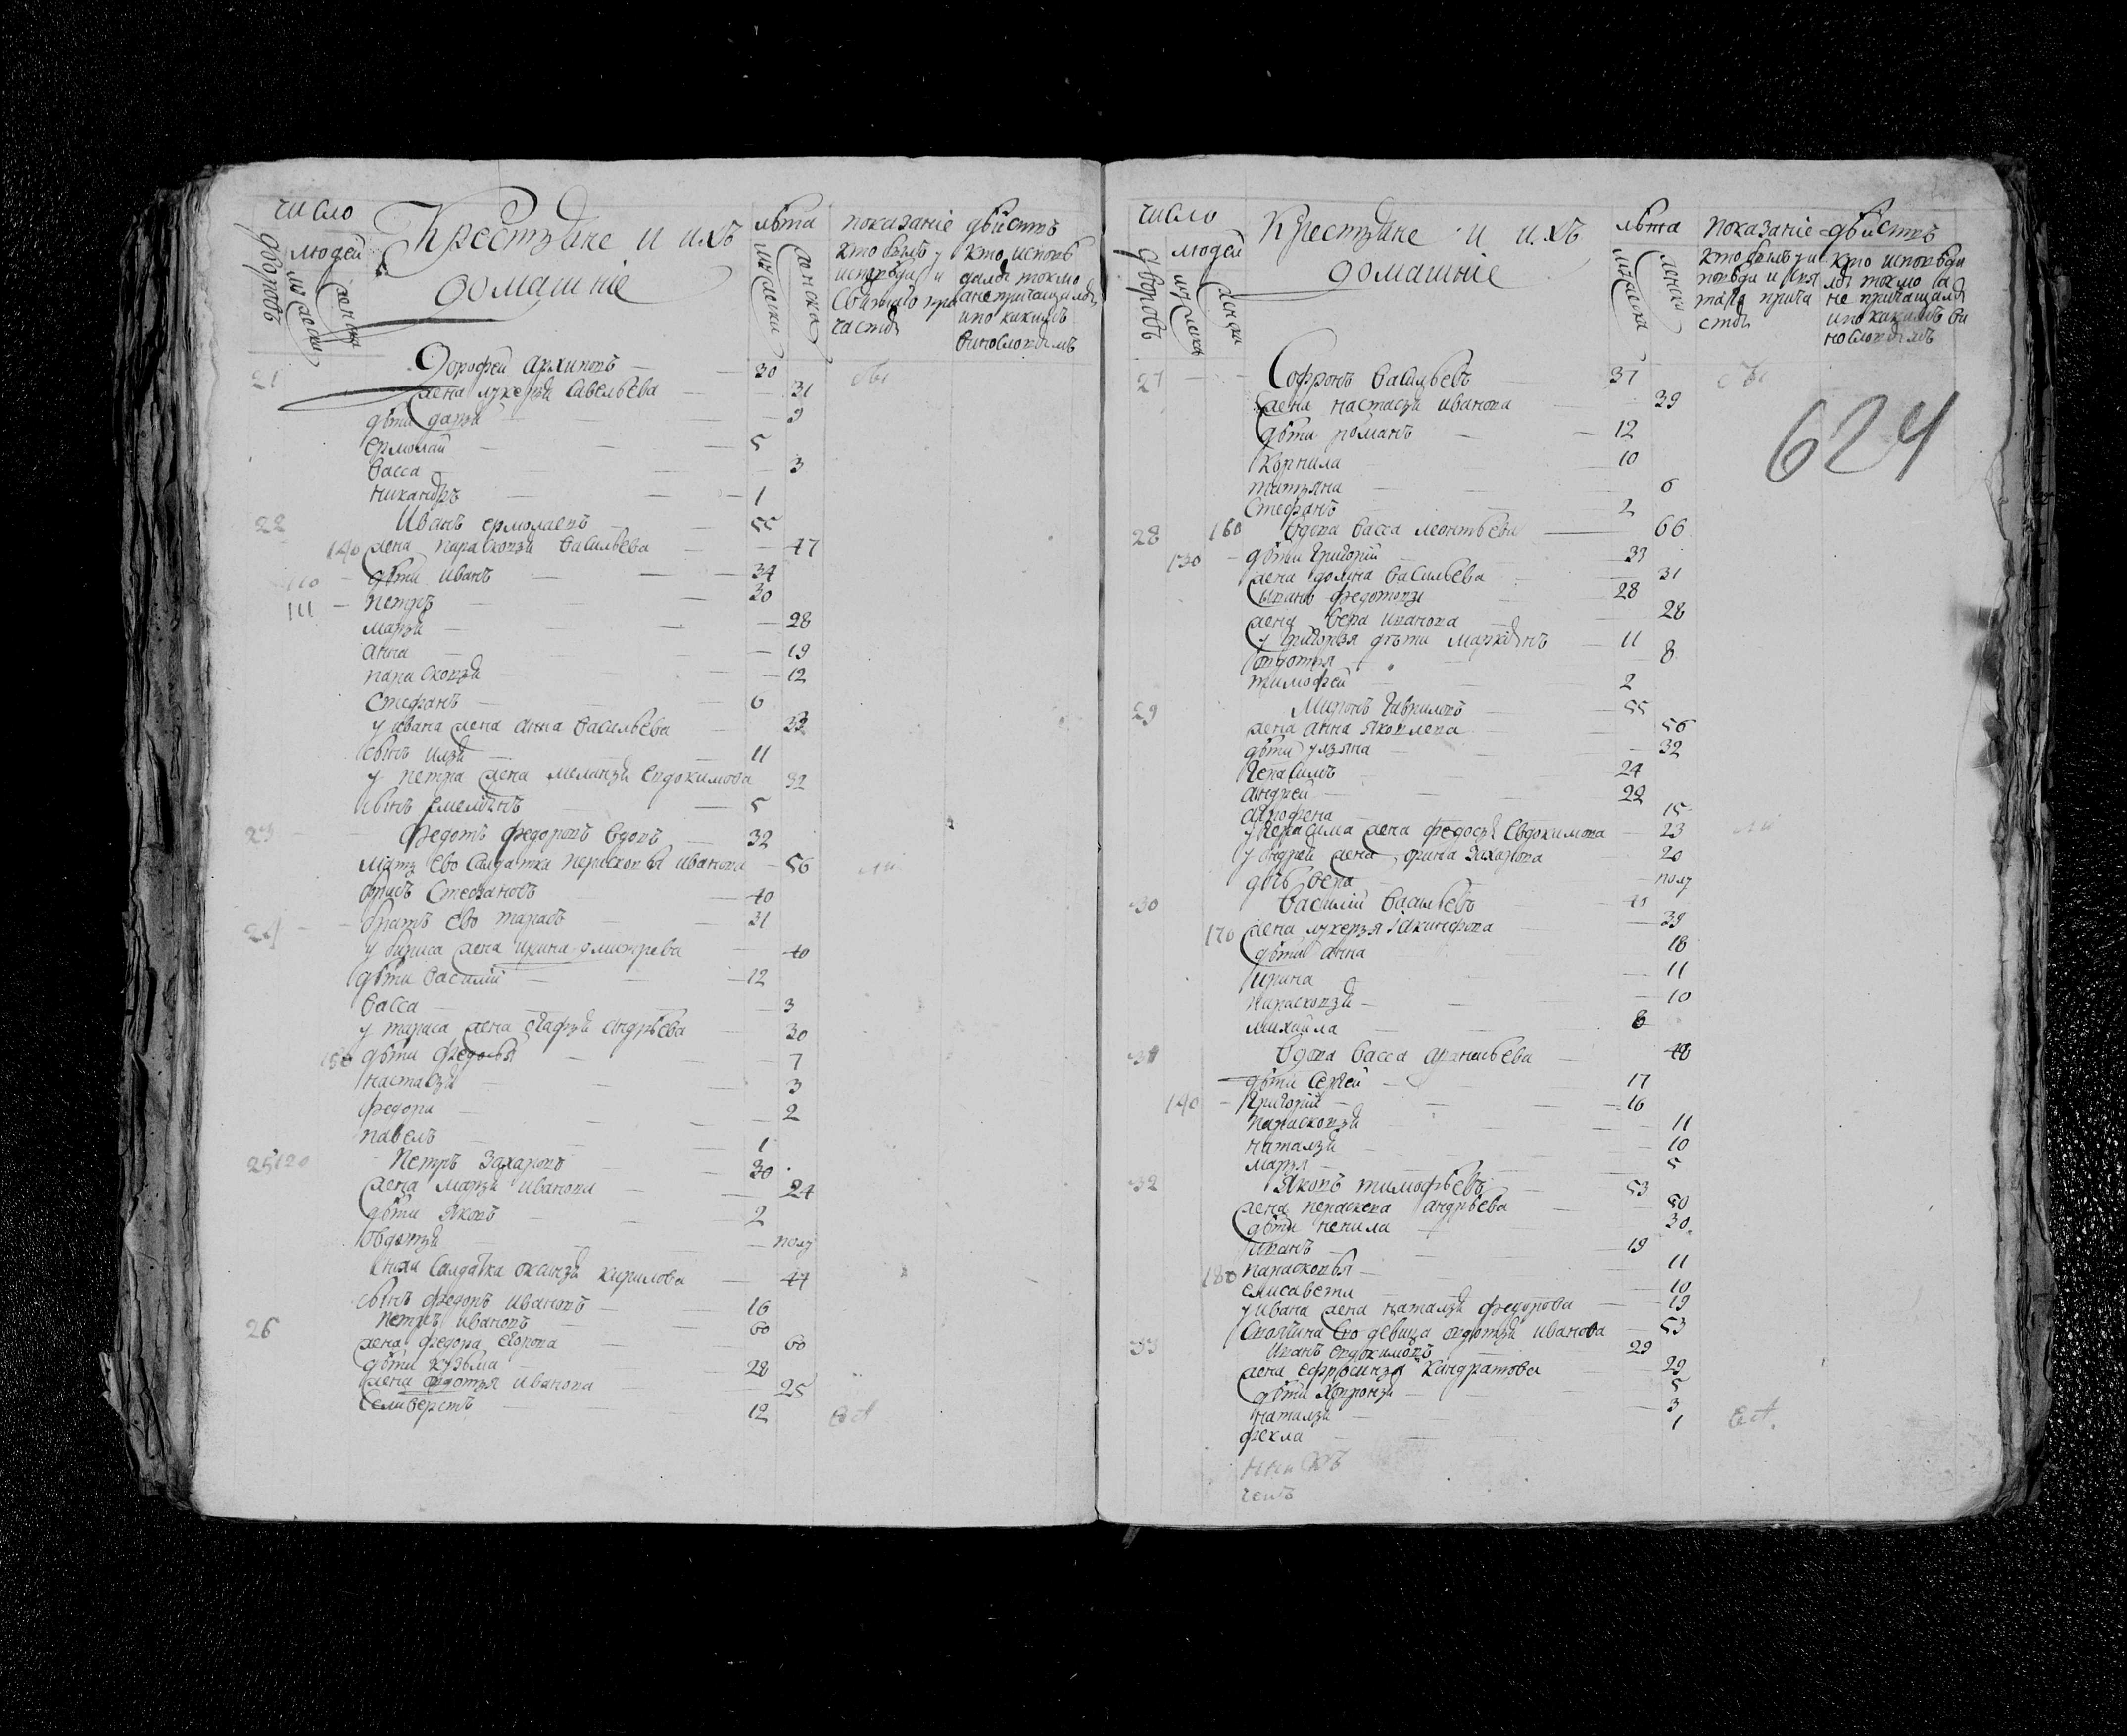 число
дворовъ
людей
мужеска
женска
Крестьяне и ихъ
домашніе
лѣта
мужеска
женска
показаніе дѣйствъ
кто былъ у
исповѣди и
святаго при
частія
кто исповѣ
дался токмо
а не причащался
и по какимъ
винословіямъ
21 Дорофей архиповъ 30
жена лукерья савельева 31
дѣти дарья 9
ермолай 5
васса 3
никандръ 1
22 Иванъ ермолаевъ 55
140 жена парасковья васильева 47
110 дѣти иванъ 34
111 петръ 30
марья 28
анна 19
парасковья 12
стефанъ 6
у ивана жена анна васильева 33
сынъ илья 11
у петра жена меланья евдокимова 32
сынъ емельянъ 5
23 Федотъ федоровъ вдовъ 32
мать ево салдатка перасковья иванова 56
борисъ Степановъ 40
24 братъ ево тарасъ 31
у бориса жена ирина дмитрева 40
дѣти василій 12
васса 3
у тараса жена агафья андрѣева 30
150 дѣти федосья 7
настасья 3
федора 2
павелъ 1
25 120 Петръ Захаровъ 30
жена марья иванова 24
дѣти яковъ 2
овдотья полу
салдатка оксинья кирилова 44
сынъ федоръ ивановъ 16
26 петръ ивановъ 60
жена федора егорова 60
дѣти кузьма 28
жена овдотья иванова 25
селиверстъ 12
число
дворовъ
людей
мужеска
женска
Крестьяне и ихъ
домашніе
лѣта
мужеска
женска
показаніе дѣйствъ
кто былъ у ис
повѣди и свя
таго прича
стія
кто исповѣди
лся токмо а
не причащался
и по какимъ ви
нословіямъ
624
27 Софронъ васильевъ 37
жена настасья иванова 39
дѣти романъ 12
корнила 10
татьяна 6
Стефанъ 2
28 160 вдова васса леонтьева 66
130 дѣти григорій 33
жена домна васильева 31
иванъ федотовъ 28
жена вера иванова 28
у григорья дѣти маркіянъ 11
овдотья 8
тимофей 2
29 Миронъ гавриловъ 55
жена анна яковлева 56
дѣти ульяна 32
герасимъ 24
андрей 22
агрофена 15
у герасима жена федосья евдокимова 23
у андрея жена орина захарова 20
дочь вера полу
30 василій васильевъ 41
170 жена лукерья іакинфова 39
дѣти анна 18
ирина 11
парасковья 10
михайла 8
31 вдова васса ананьева 48
дѣти сергей 17
140 григорій 16
парасковья 11
наталья 10
марья 5
32 яковъ тимофѣевъ 53
жена параскева андрѣева 50
дѣти ненила 30
иванъ 19
180 парасковья 11
елисавета 10
у ивана жена наталья федорова 19
своячина ево девица овдотья иванова 53
33 иванъ евдокимовъ 29
жена ефросинья кандратова 29
дѣти хевронья 5
наталья 3
фекла 1